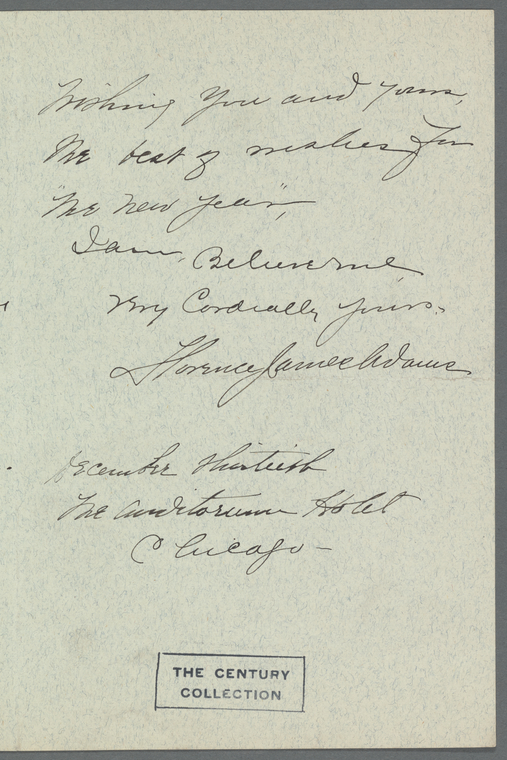 Wishing you and yours,
The best of wishes for
"The New Year",
I am, Believe me
Very Cordially yours.
Florence James Adams
December thirtieth
The Auditorium Hotel
Chicago -
THE CENTURY
COLLECTION